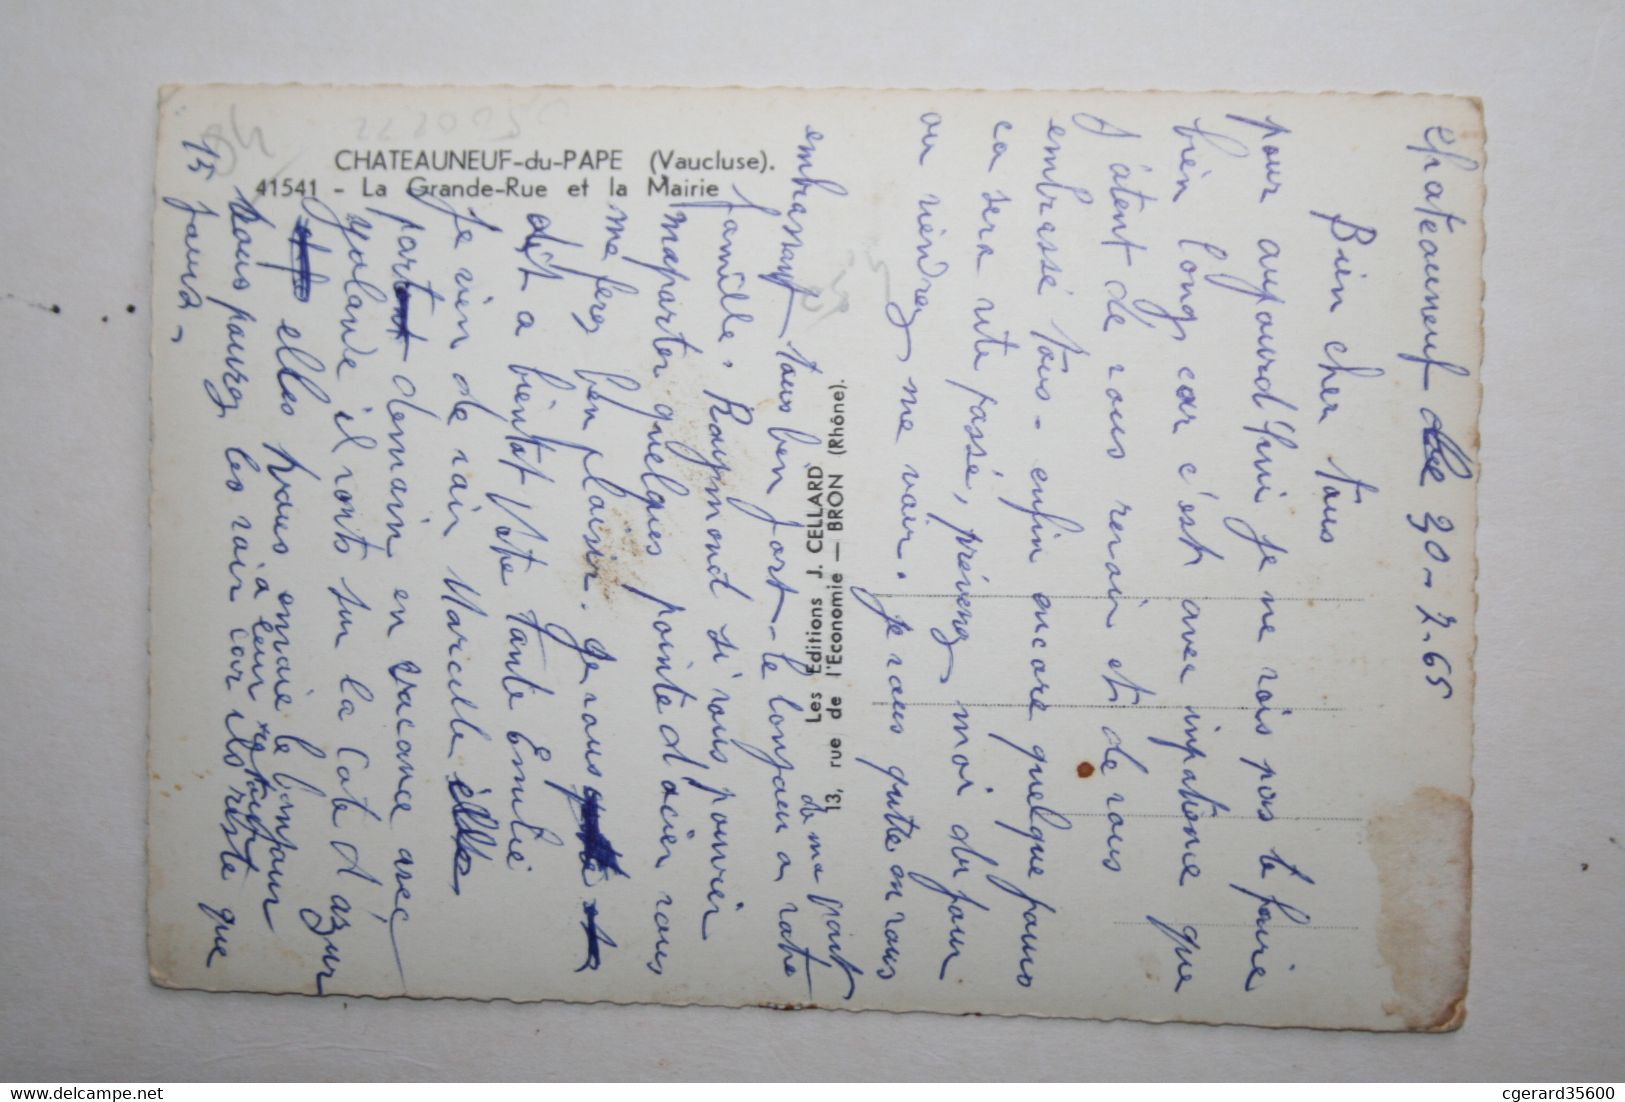 CHATEAUNEUF-du-PAPE (Vaucluse).
41541 - La Grande-Rue et la Mairie
Les Editions J. CELLARD
13, rue de l'Economie — BRON (Rhône).
chateauneuf 30-7.65
Bien cher tous
pour aujourd'hui je ne vois pas te faire
bien long, car c'est avec impatience que
j'atent de vous revoir et de vous
embrassé tous - enfin encore quelque jours
ca sera vite passé, prévenez moi du jour
ou viendrez me voir. je vous quitte en vous
embrassant tous bien fort - le bonjour a votre
famille. de ma part
Raymond si vous pouvier
m'apporter quelques pointe d'acier vous
me ferez bien plaisir. je vous
dit a bientot Votre tante Emilie
Je vien de voir Marcelle
part demain en vacance avec
yolande il vonts sur la Cote d'azur
elles vous envoie le bonjour
vous pourez les voir a leur retour car ils reste que
15 jours -
cgerard35600